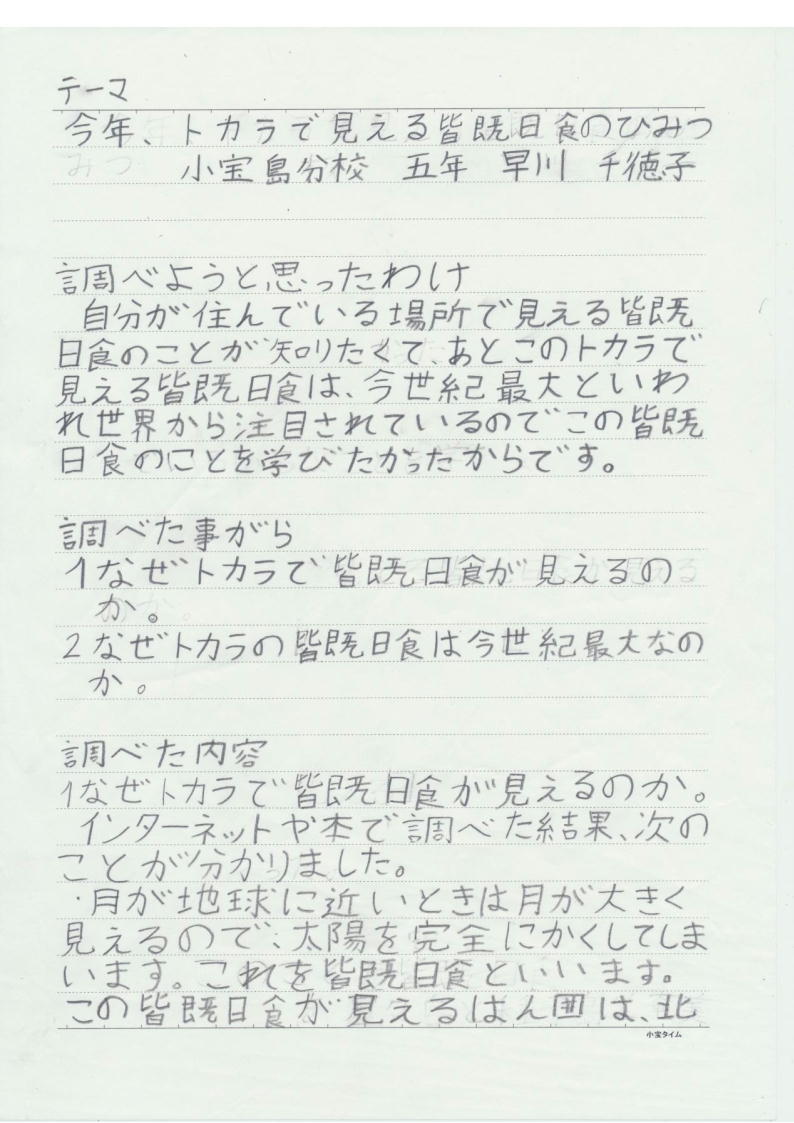 テーマ
今年、トカラで見える皆既日食のひみつ
小宝島分校 五年 早川 千徳子
調べようと思ったわけ
自分が住んでいる場所で見える皆既
日食のことが知りたくて、あとこのトカラで
見える皆既日食は、今世紀最大といわ
れ世界から注目されているのでこの皆既
日食のことを学びたかったからです。
調べた事がら
1なぜトカラで皆既日食が見えるの
か。
2なぜトカラの皆既日食は今世紀最大なの
か。
調べた内容
1なぜトカラで皆既日食が見えるのか。
インターネットや本で調べた結果、次の
ことが分かりました。
・月が地球に近いときは月が大きく
見えるので、太陽を完全にかくしてしま
います。これを皆既日食といいます。
この皆既日食が見えるはん囲は、北
小宝タイム